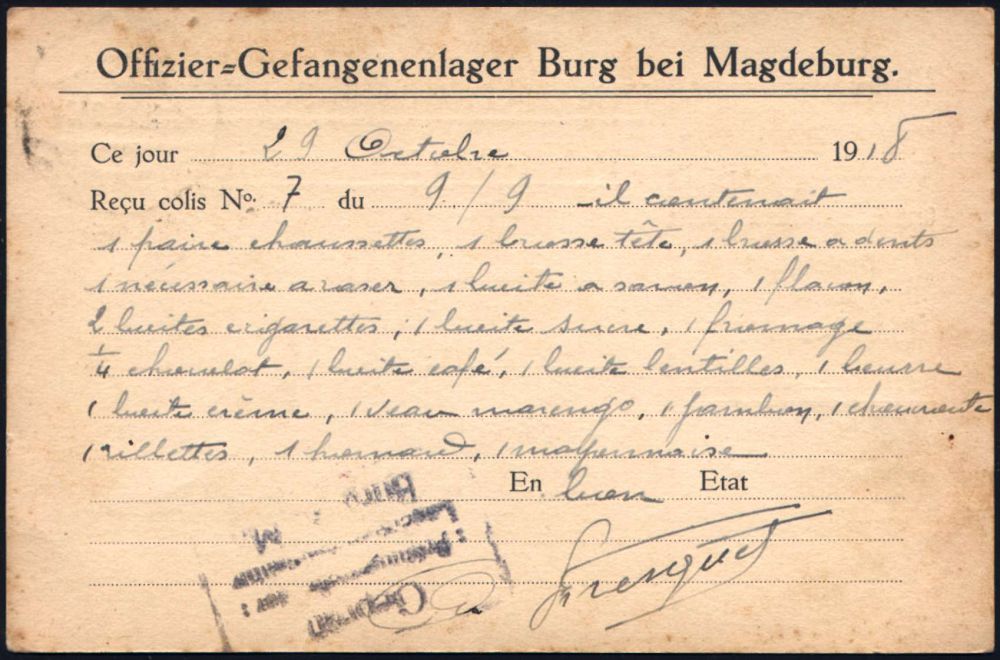 Offizier=Gefangenenlager Burg bei Magdeburg.
Ce jour 29 Octobre 1918
Reçu colis No. 7 du 9/9 - il contenait
1 paire chaussettes, 1 brosse tête, 1 brosse a dents
1 nécessaire a raser, 1 boite a savon, 1 flacon,
2 boites cigarettes, 1 boite sucre, 1 fromage
1/4 chocolat, 1 boite café, 1 boite lentilles, 1 beurre
1 boite crème, 1 veau marengo, 1 jambon, 1 choucroute
1 rillettes, 1 homard, 1 mayonnaise
En bon Etat
Geprüft
Burg